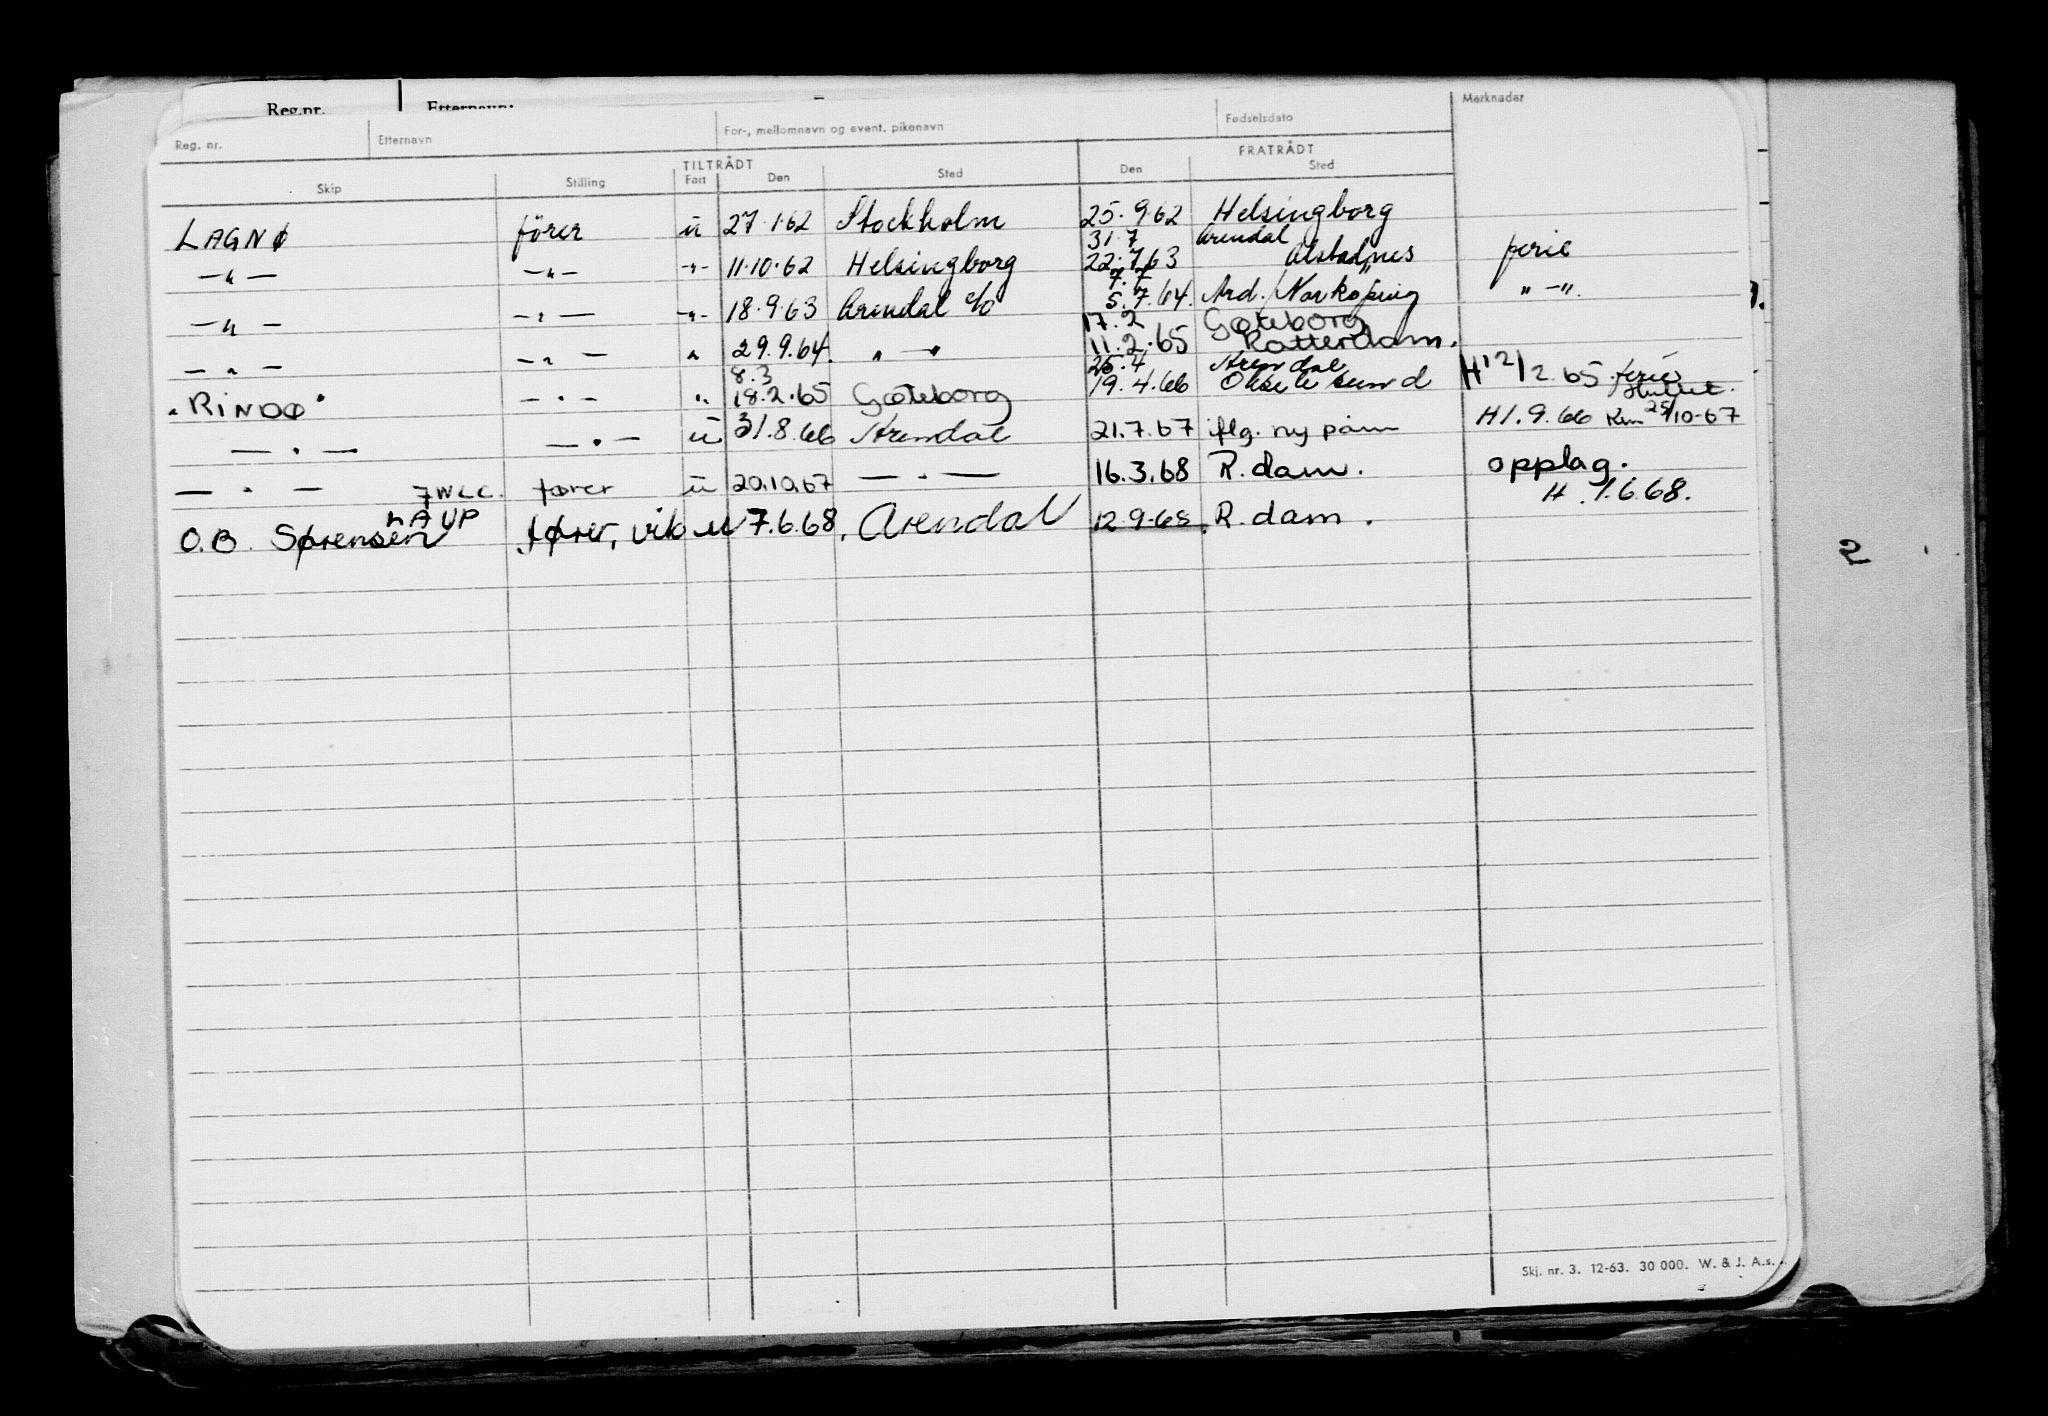 Reg.nr. Etternavn:
Reg. nr. Etternavn For-, mellomnavn og event. pikenavn Fødselsdato Merknader
TILTRÅDT FRATRÅDT
Skip Stilling Fart Den Sted Den Sted
LAGNØ fører u 27.1.62 Stockholm 25.9.62 Helsingborg
31.7 Arendal
—"— —"— -"- 11.10.62 Helsingborg 22.7.63 ferie
7.7
—"— —"— -"- 18.9.63 Arendal 5.7.64. Ard./Norkøping "—".
17.2 Gøteborg
—"— —"— " 29.9.64. "—" 11.2.65 Rotterdam.
8.3 25.4 Arendal
"RINDØ" —"— " 18.2.65 Gøteborg 19.4.66 H12/2.65 ferie
—"— —"— u 31.8.66 Arendal 21.7.67 iflg. ny påm H1.9.66 25/10-67
—"— 7WLC. fører u 20.10.67 —"— 16.3.68 R.dam. opplag.
H.1.6.68.
LAUP
O.B. Sørensen fører, vik u 7.6.68. Arendal 12.9.68. R.dam.
2
Skj. nr. 3. 12-63. 30 000. W. & J. A.s.